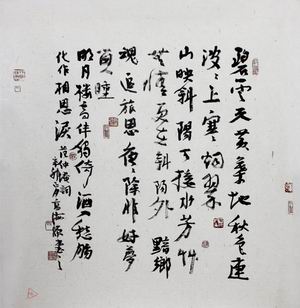 碧雲天黄葉地秋色連
波〻上寒烟翠
山映斜陽天接水芳草
無情更在斜陽外黯鄉
魂追旅思夜〻除非好夢
留人睡
明月樓高休獨倚酒入愁腸
化作相思淚范仲淹詞